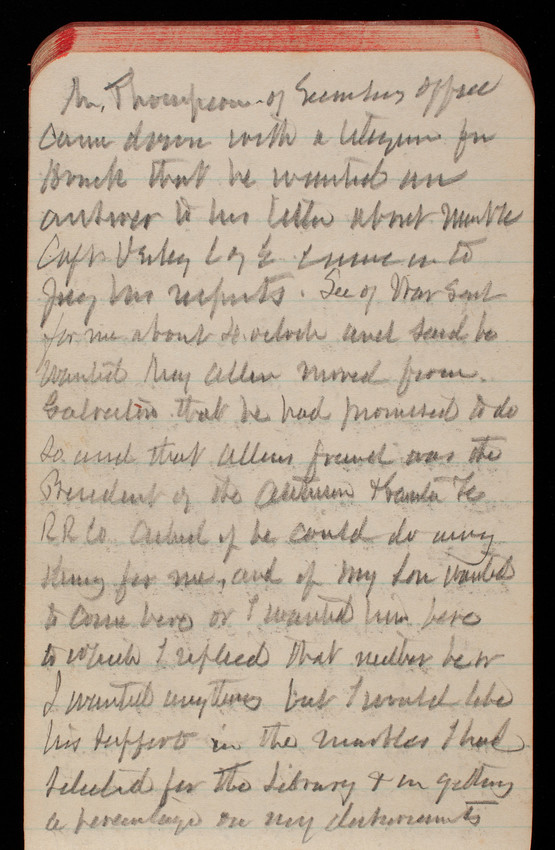 Mr. Thompson of Secretarys office
came down with a telegram for
that he wanted an
answer to his letter about Marble
Capt came in to
his reports. Sec of War sent
for me about 2 oclock and said he
wanted Maj Allen moved from
Galveston that he had promised to do
so and that Allens friend was the
President of the Atchison & Santa Fe
R R Co Asked if he could do any
thing for me, and if my son wanted
to come here or I wanted him here
to which I replied that neither he or
I wanted anything but I would like
his support in the marbles I had
selected for the Library & in getting
a percentage on my disbursements